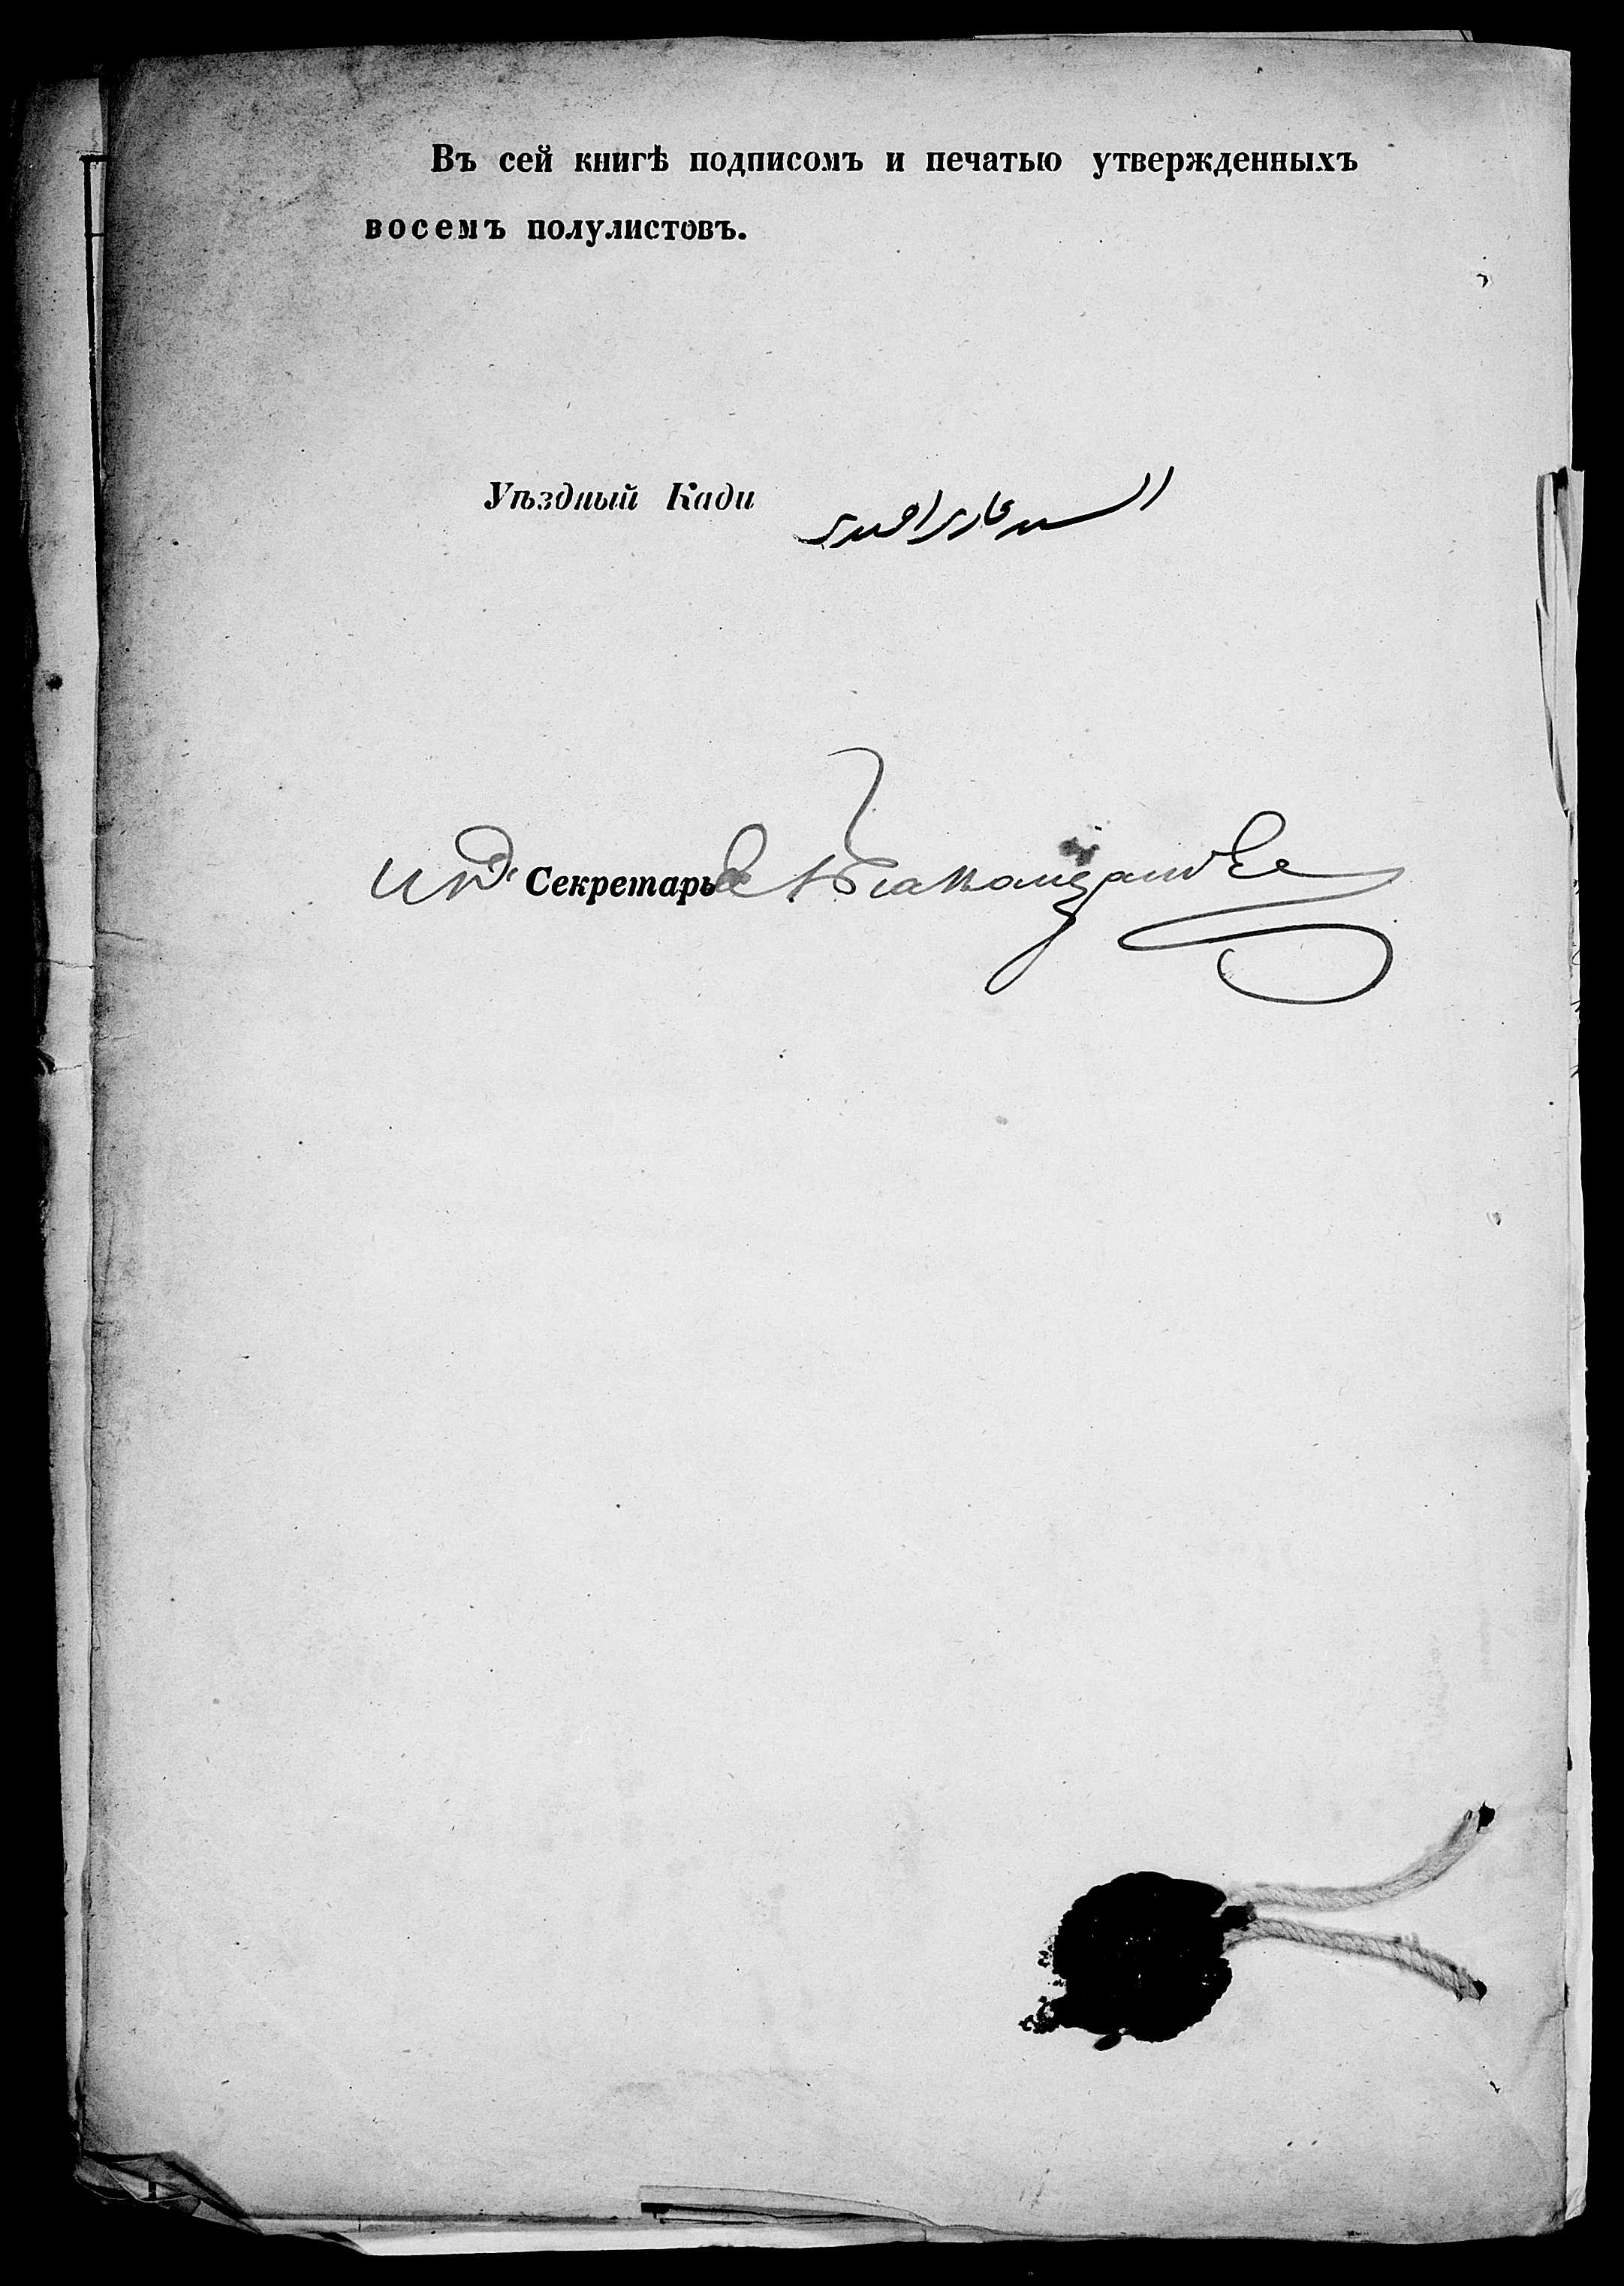 Въ сей книгѣ подписомъ и печатью утвержденныхъ
восемъ полулистовъ.
Уѣздный Кади السيد
И Д. Секретарь